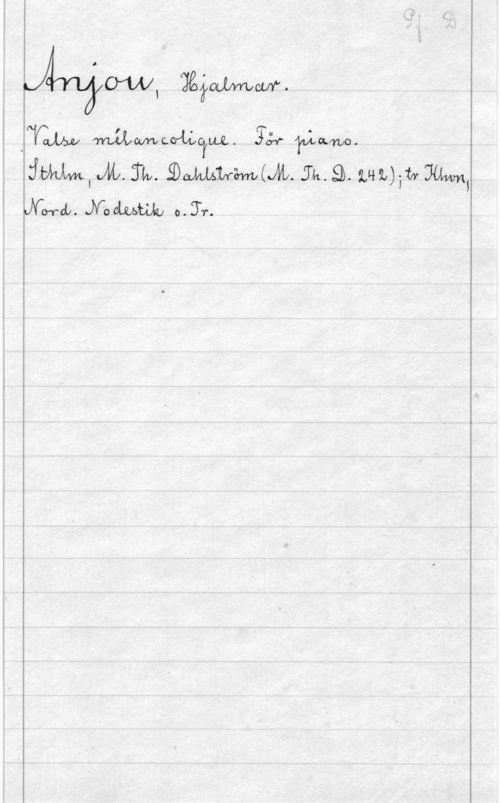 Pf. D.
Anjou, Hjalmar.
Valse mélancolique. För piano.
Sthlm, M. Th. Dahlström (M. Th. D. 242); tr Khvn,
Nord. Nodestik o. Tr.